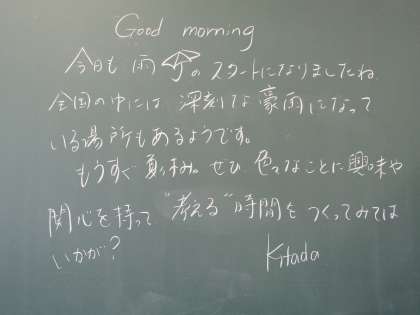 Good morning
今日も雨☂のスタートになりましたね
全国の中には、深刻な豪雨になって
いる場所もあるようです。
もうすぐ夏休み。ぜひ色々なことに興味や
関心を持って"考える"時間をつくってみては
いかが?
Kitada